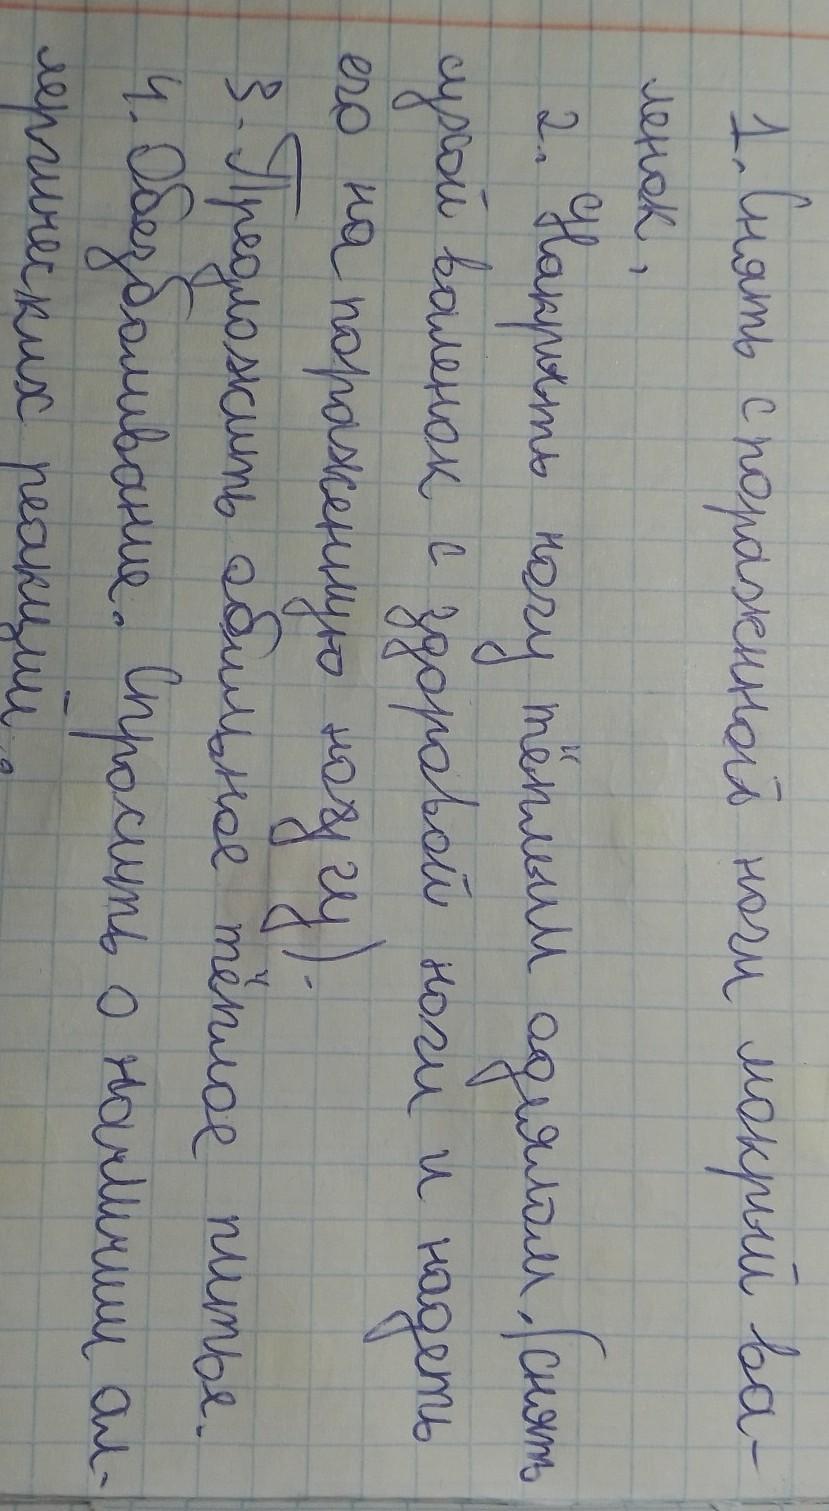 1. Снять с пораженной ноги мокрый ва-
ленок,
2. Накрыть ногу тёплым одялом, (снять
сухой валенок с здоровой ноги и надеть
его на пораженную ногу).
3. Предложить обильное тёплое питье.
4. Обезболивание. Спросить о наличии ал-
лергических реакций.